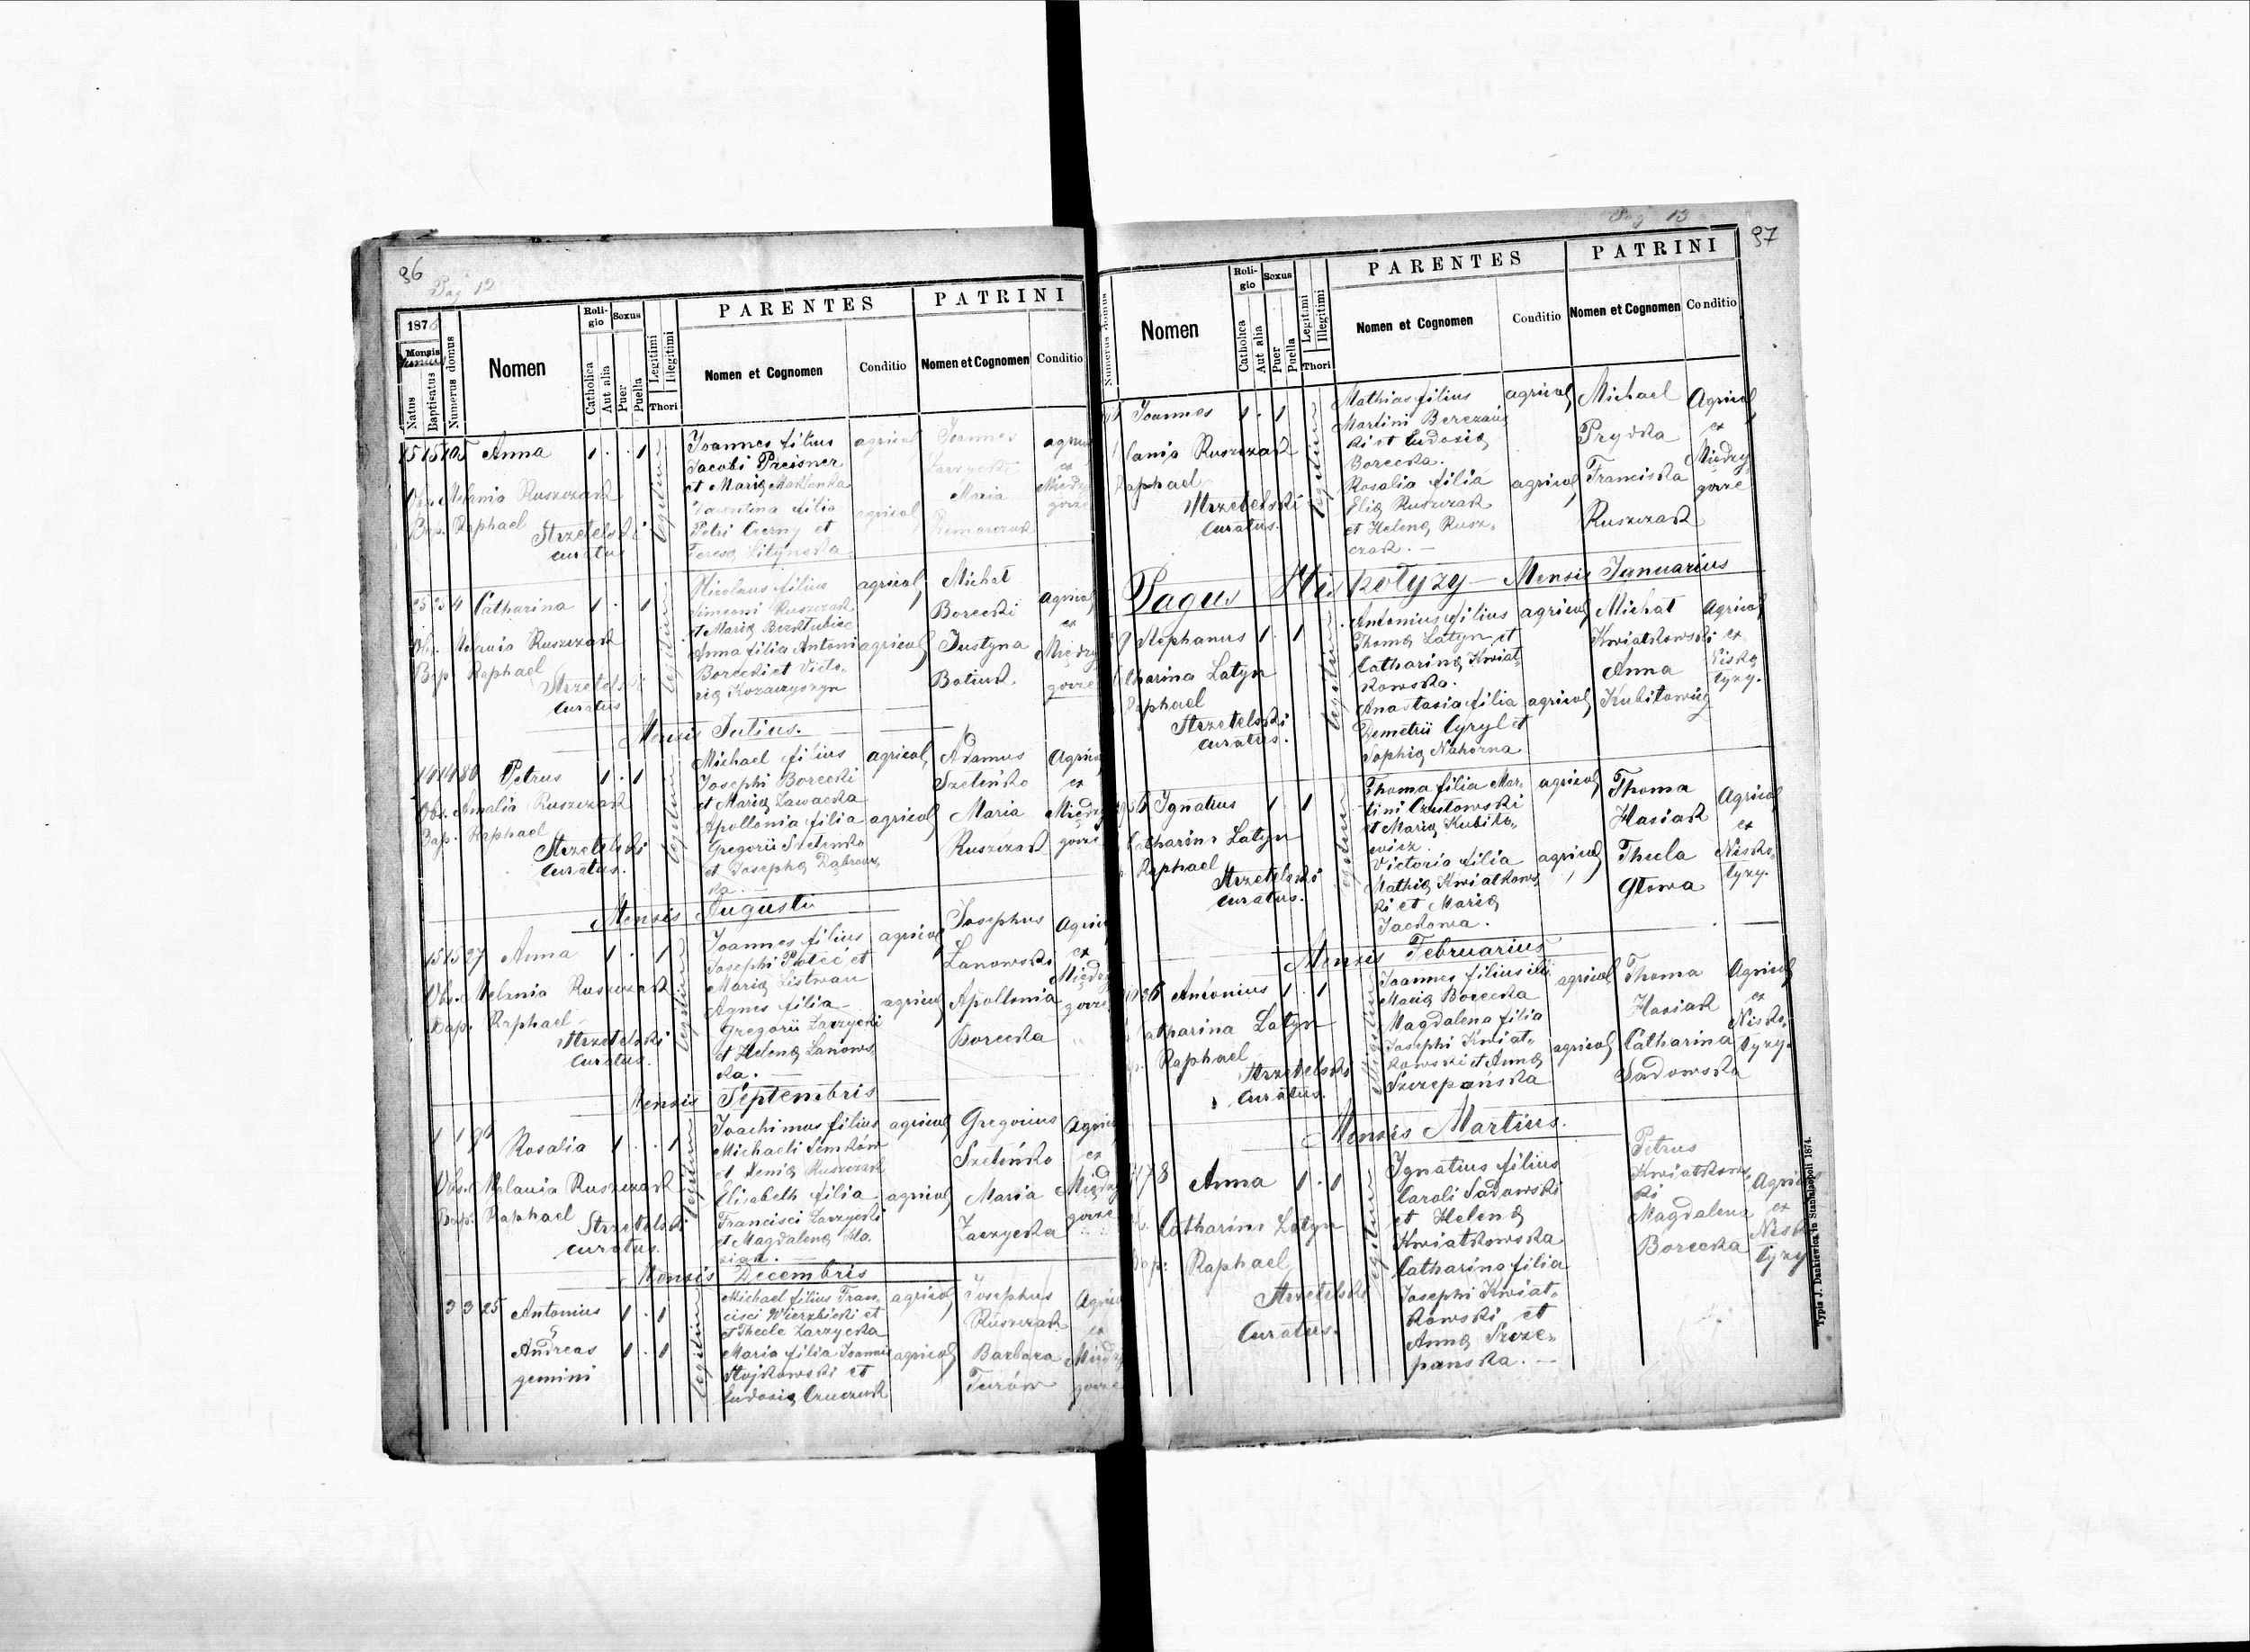 96
Pag 12
1876
Mensis
Natus
Baptisatus
Numerus domus
Nomen
Religio
Catholica
Aut alia
Sexus
Puer
Puella
Legitimi
Illegitimi
Thori
PARENTES
Nomen et Cognomen
Conditio
PATRINI
Nomen et Cognomen
Conditio
15 15 105 Anna 1 . . 1
Obs. Melania Ruszczak
Bap. Raphael
Strzetelski
curatus
legitimi
Joannes filius
Jacobi Preisner
et Maria
filia
Petri Czerny et
agricol
agricol
Joannes
Zarzycki
Maria
agricol
ex
Między
gorze
25 25 4 Catharina 1 . 1
Obs. Melania Ruszczak
Bap. Raphael
Strzetelski
curatus
Nicolaus filius
Simeoni Ruszczak
et Maria
Anna filia Antoni
Borecki et Victo-
ria
agricol
agricol
Michał
Borecki
Justyna
Botiuk
agricol
ex
Między
gorze
Mensis Julius.
14 14 86 Petrus 1 . 1
Obs. Amalia Ruszczak
Bap. Raphael
Strzetelski
curatus.
Michael filius
Josephi Borecki
et Maria Zawacka
Apollonia filia
Gregorii Szeleńko
et Josepha Dąbrows
ka. —
agricol
agricol
Adamus
Szeleńko
Maria
Ruszczak
Agricol
ex
Między
gorze
Mensis Augusti
15 15 27 Anna 1 . 1
Obs. Melania Ruszczak
Bap. Raphael
Strzetelski
curatus.
Joannes filius
Josephi et
Maria Listwan
Agnes filia
Gregorii Zarzycki
et Helena Lanows
ka. —
agricol
agricol
Josephus
Lanowski
Apollonia
Borecka
Agricol
ex
Między
gorze
Mensis Septembris
Rosalia 1 . . 1
Obs. Melania Ruszczak
Bap. Raphael
Strzetelski
curatus.
Joachimus filius
Michaeli Semków
et Xenia Ruszczak
Elisabeth filia
Francisci Zarzycki
et Magdalena Ha-
siak. —
agricol
agricol
Gregorius
Szeleńko
Maria
Zarzycka
Agricol
ex
Między
gorze
Mensis Decembris
3 3 25 Antonius 1 . 1
Andreas 1 . 1
gemini
Michael filius Fran-
cisci Wierzbicki et
et Thecle Zarzycka
Maria filia Joannis
Stojkowski et
Eudosia
agricol
agricol
Josephus
Ruszczak
Barbara
Turów
Agricol
ex
Między
gorze
Pag 13
97
Numerus domus
Nomen
Religio
Catholica
Aut alia
Sexus
Puer
Puella
Legitimi
Illegitimi
Thori
PARENTES
Nomen et Cognomen
Conditio
PATRINI
Nomen et Cognomen
Conditio
Joannes 1 . 1
lania Ruszczak
Raphael
Strzetelski
curatus.
Mathias filius
Martini Berezow
ki et Eudosia
Borecka.
Rosalia filia
Elia Ruszczak
et Helena Rusz-
czak. —
agricol
agricol
Michael
Prydka
Franciska
Ruszczak
Agricol
ex
Między
gorze
Pagus Niskołyzy — Mensis Januarius
Stephanus 1 . 1
Catharina Latyn
Raphael
Strzetelski
curatus.
Antonius filius
Thoma Latyn et
Catharina Kwiat-
kowska.
Anastasia filia
Demetrii Cyryl et
Sophia Nahorna
agricol
agricol
Michał
Kwiatkowski
Anna
Kubitowicz
Agricol
ex
Nisko
łyzy.
Ignatius 1 . 1
Catharina Latyn
Raphael
Strzetelski
curatus.
Thoma filia Mar-
tini
et Maria Kubito-
wicz.
Victoria filia
Mathia Kwiatkows
ki et Maria
Jackowa.
agricol
agricol
Thoma
Hasiak
Thecla
Głowa
Agricol
ex
Nisko-
łyzy.
Mensis Februarius
Antonius 1 . 1
Catharina Latyn
Raphael
Strzetelski
curatus.
Joannes filius ill.
Maria Borecka
Magdalena filia
Josephi Kwiat-
kowski et Anna
Szczepańska
agricol
agricol
Thoma
Hasiak
Catharina
Sadowska
Agricol
ex
Nisko-
łyzy.
Mensis Martius.
Anna 1 . 1
Catharina Latyn
Bap: Raphael
Strzetelski
Curatus.
Ignatius filius
Caroli Sadowski
et Helena
Kwiatkowska
Catharina filia
Josephi Kwiat-
kowski et
Anna Szcze-
pańska. —
Petrus
Kwiatkows-
ki
Magdalena
Borecka
Agricol
ex
Nisko
łyzy
Typis J. Dankiewicz in Stanislaopoli 1874.